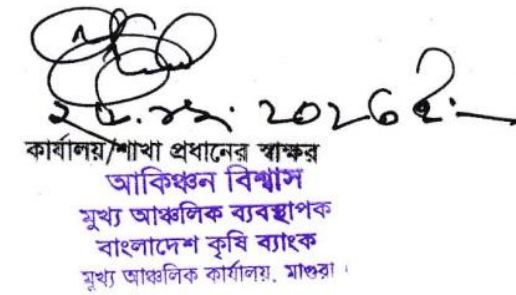 কার্যালয়/শাখা প্রধানের স্বাক্ষর
আকিঞ্চন বিশ্বাস
মুখ্য আঞ্চলিক ব্যবস্থাপক
বাংলাদেশ কৃষি ব্যাংক
মুখ্য আঞ্চলিক কার্যালয়, মাগুরা।